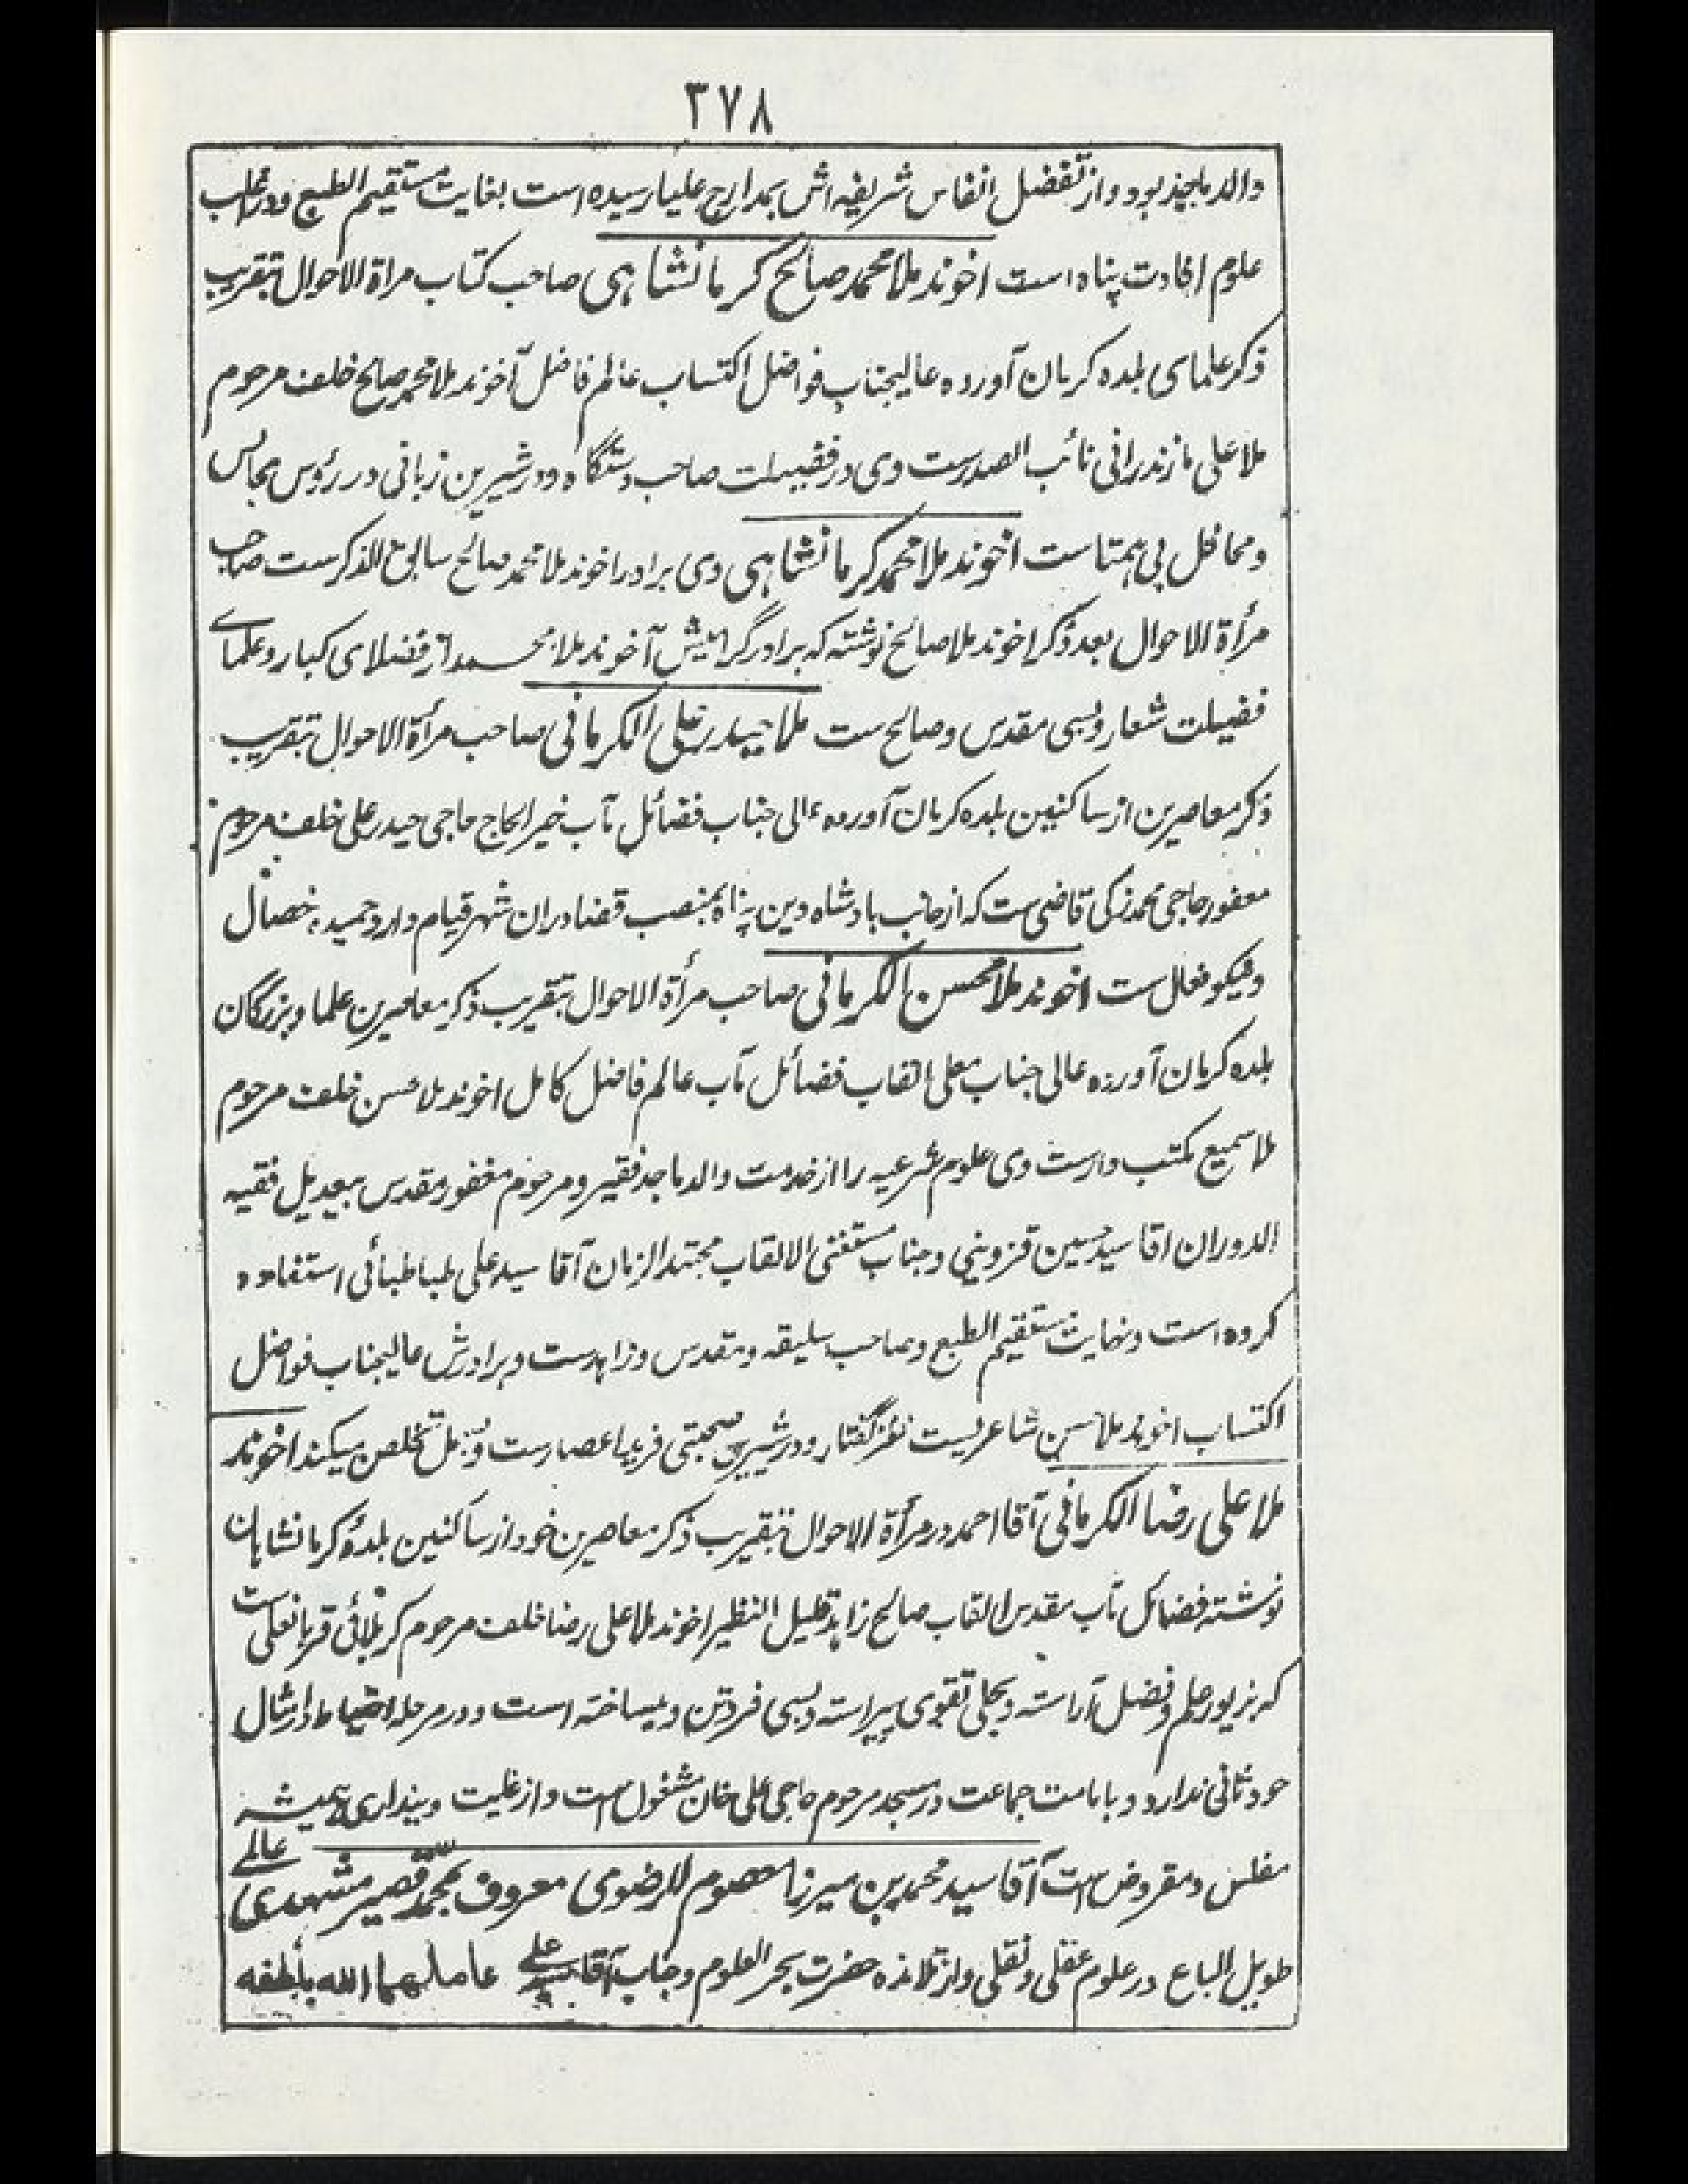 ٣٧٨
والد ماجد بود و از تفضل انفاس شریفه اش بمدارج علیا رسیده است بغایت مستقیم الطبع و در اغلب
علوم افادت پناه است اخوند ملا محمد صالح کرمانشاهی صاحب کتاب مراة الاحوال بتقریب
ذکر علمای بلده کرمان آورده عالیجناب فواضل اکتساب عالم فاضل آخوند ملا محمد صالح خلف مرحوم
ملا علی مازندرانی نائب الصدرست وی در فضیلت صاحب دستگاه و در شیرین زبانی در رؤس مجالس
و محافل بی همتاست اخوند ملا محمد کرمانشاهی وی برادر اخوند ملا محمد صالح سابق الذکرست صاحب
مرأة الاحوال بعد ذکر اخوند ملا صالح نوشته که برادر گرامیش آخوند ملا محمد از فضلای کبار و علمای
فضیلت شعار و بسی مقدس و صالح ست ملا حیدر علی الکرمانی صاحب مرأة الاحوال بتقریب
ذکر معاصرین از ساکنین بلده کرمان آورده عالی جناب فضائل مآب خیر الحاج حاجی حیدر علی خلف مرحوم
مغفور حاجی محمد زکی قاضی ست که از جانب بادشاه دین پناه بمنصب قضا دران شهر قیام دارد حمیده خصال
و نیکو فعال ست اخوند ملا محسن الکرمانی صاحب مرأة الاحوال بتقریب ذکر معاصرین علما و بزرگان
بلده کرمان آورده عالی جناب معلی القاب فضائل مآب عالم فاضل کامل اخوند ملا محسن خلف مرحوم
ملا سمیع مکتب دارست وی علوم شرعیه را از خدمت والد ماجد فقیر و مرحوم مغفور مقدس بیعدیل فقیه
الدوران اقا سید حسین قزوینی و جناب مستغنی الالقاب مجتهد الزمان آقا سید علی طباطبائی استفاده
کرده است و نهایت مستقیم الطبع و صاحب سلیقه و مقدس و زاهدست و برادرش عالیجناب فواضل
اکتساب اخوند ملا حسن شاعریست نغز گفتار و در شیرین صحبتی فرید اعصارست و بسمل تخلص میکند اخوند
ملا علی رضا الکرمانی آقا احمد در مرأة الاحوال بتقریب ذکر معاصرین خود از ساکنین بلده کرمانشاهان
نوشته فضائل مآب مقدس القاب صالح زاهد قلیل النظیر اخوند ملا علی رضا خلف مرحوم کربلائی قربانعلی ست
که بزیور علم و فضل آراسته و بحلی تقوی پیراسته و بسی فروتن و بیساخته است و در مرحله احتیاط از امثال
خود ثانی ندارد و بامامت جماعت در مسجد مرحوم حاجی علی خان مشغول است و از غایت دینداری همیشه
مفلس و مقروض است آقا سید محمد بن میرزا معصوم الرضوی معروف بمحمد قصیر مشهدی عالمے
طویل الباع در علوم عقلی و نقلی و از تلامذه حضرت بحر العلوم و جناب آقا سید علی عاملهما الله بلطفه